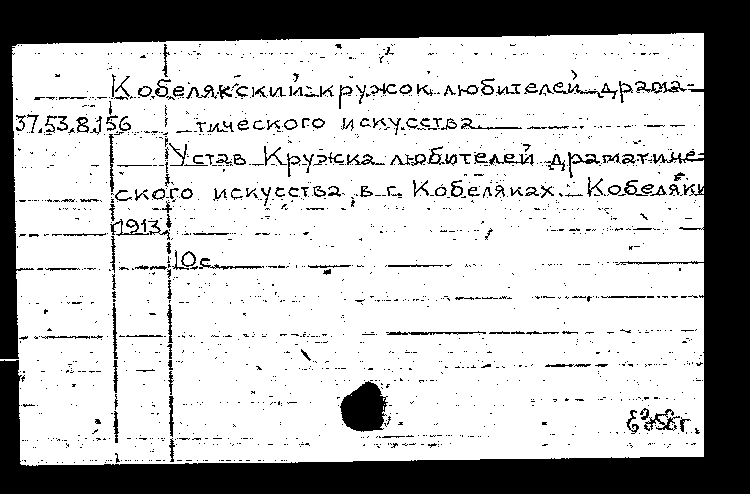 Кобелякский кружок любителей драма-
37.53.8.156 тического искусства.
Устав Кружка любителей драматиче-
ского искусства в г. Кобеляках. Кобеляки
1913.
10 с.